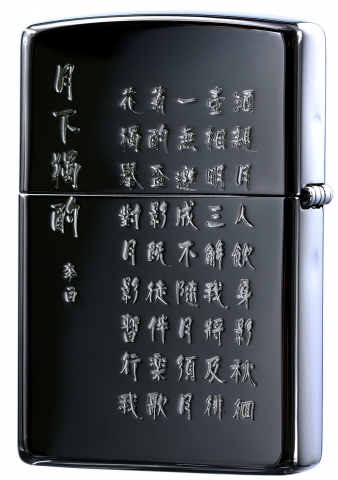 月下獨酌
李白
花有一壺酒
獨酌無相親
舉盃邀明月
對影成三人
月既不解飲
影徒隨我身
暫伴月將影
行樂須及秋
我歌月徘徊